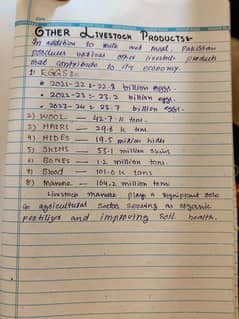 OTHER LIVESTOCK PRODUCTS:-
In addition to milk and meat, Pakistan
produces various other livestock products
that contribute to its economy.
1) EGGS:-
• 2021-22 :- 22.8 billion eggs.
• 2022-23 :- 23.2 billion eggs.
• 2023-24 :- 23.7 billion eggs.
2) WOOL — 42.7 k tons.
3) HAIRS — 29.8 k tons.
4) HIDES — 19.5 million hides
5) SKINS — 55.1 million skins
6) BONES — 1.2 million tons.
7) Blood — 101.0 k tons
8) Manure — 104.2 million tons
Livestock manure play a significant role
in agricultural sector serving as organic
fertilizer and improving soil health.